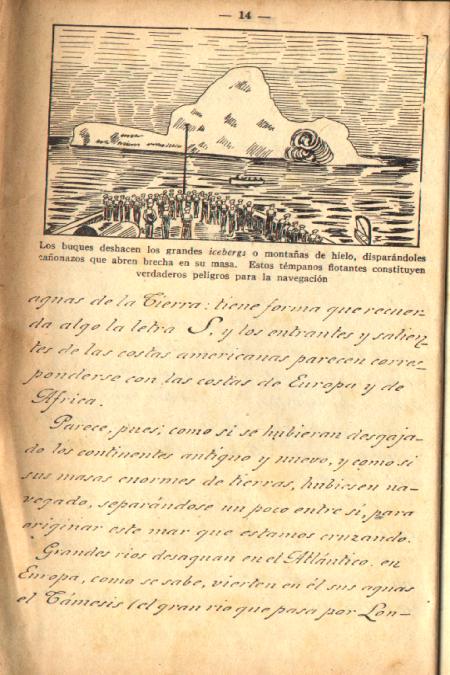 — 14 —
Los buques deshacen los grandes icebergs o montañas de hielo, disparándoles
cañonazos que abren brecha en su masa. Estos témpanos flotantes constituyen
verdaderos peligros para la navegación
aguas de la Tierra: tiene forma que recuer-
da algo la letra S. y los entrantes y salien-
tes de las costas americanas parecen corres-
ponderse con las costas de Europa y de
Africa.
Parece, pues; como si se hubieran desgaja-
do los continentes antiguo y nuevo, y como si
sus masas enormes de tierras, hubiesen na-
vegado, separándose un poco entre si, para
originar este mar que estamos cruzando.
Grandes rios desaguan en el Atlántico. en
Europa, como se sabe, vierten en él sus aguas
el Támesis (el gran rio que pasa por Lon-